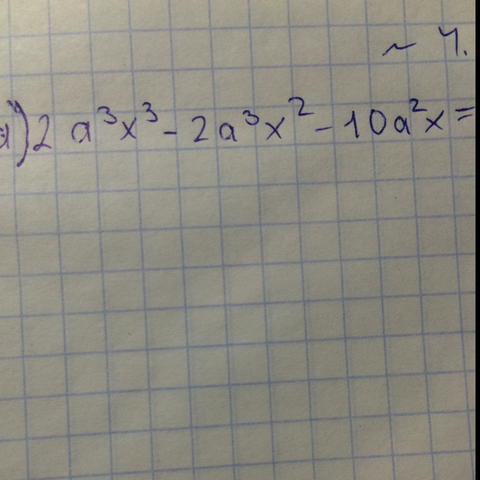 ~ 4.
а) 2 a³x³ - 2a³x² - 10a²x =